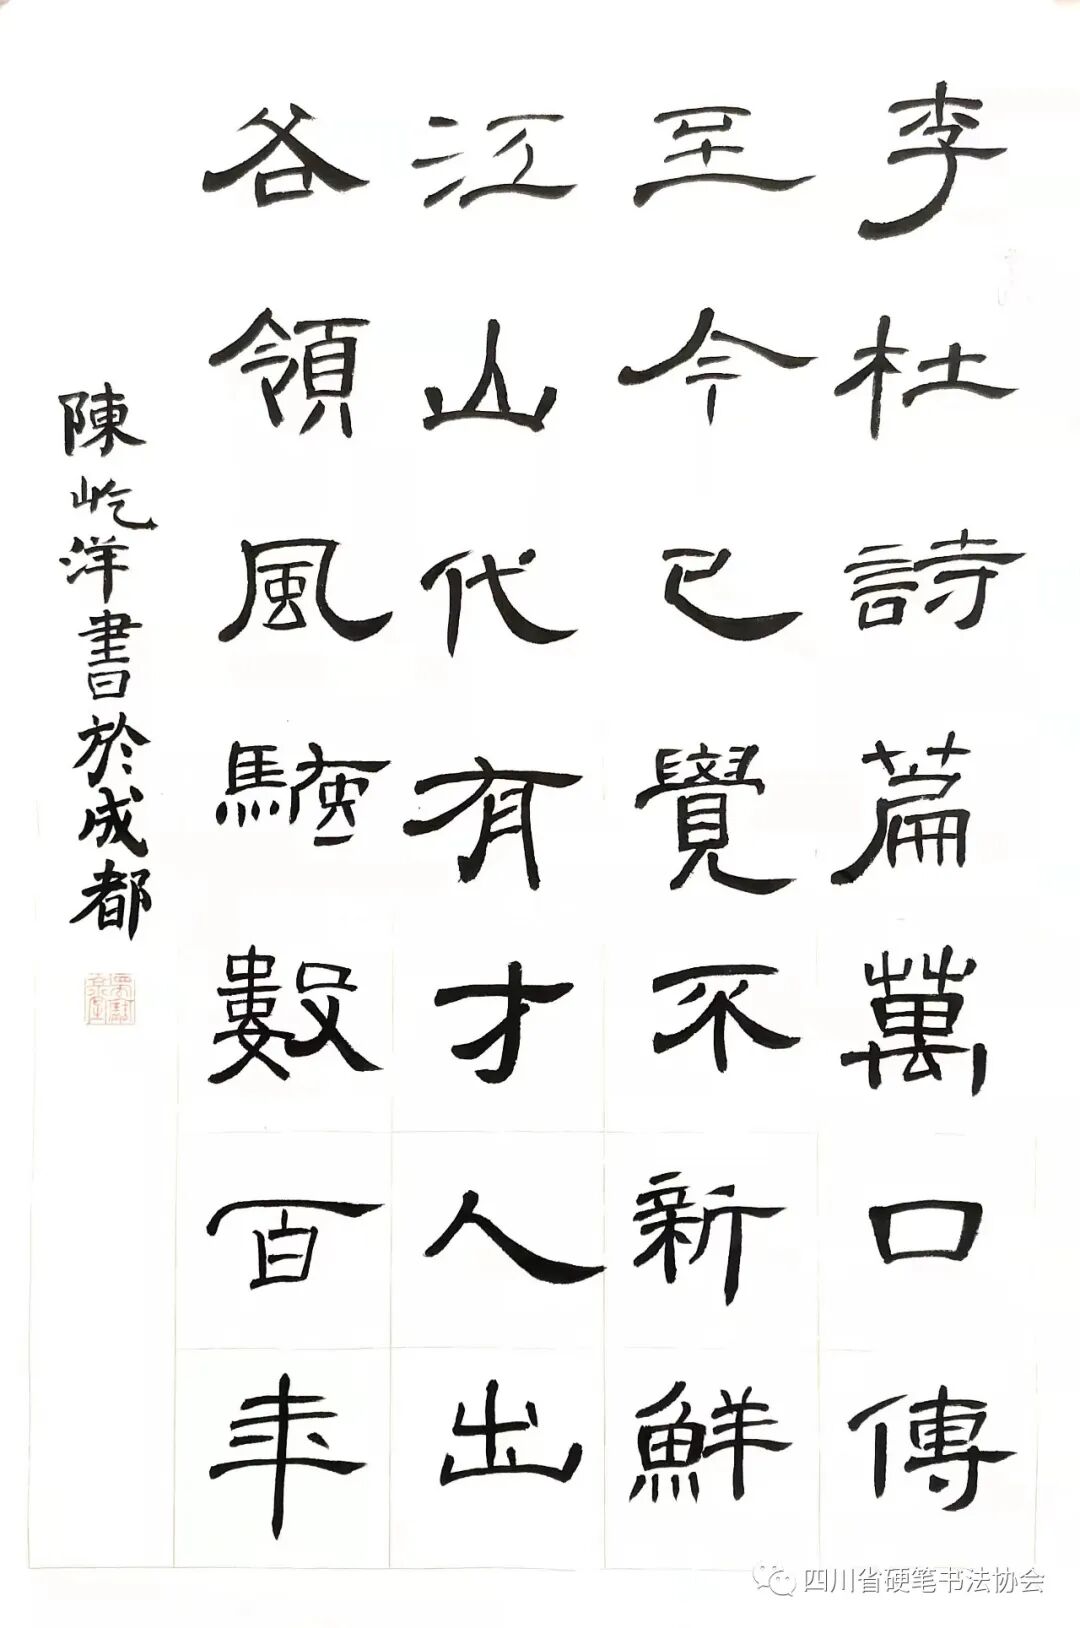 李杜詩篇萬口傳
至今已覺不新鮮
江山代有才人出
各領風騷數百年
陳屹洋書於成都
四川省硬笔书法协会